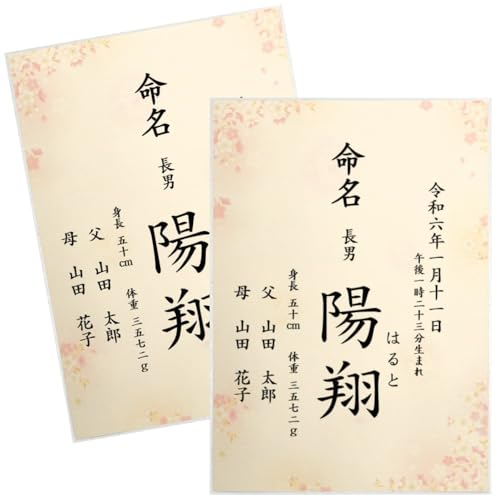 命名
長男
陽翔
身長 五十cm 体重 三五七二g
父 山田 太郎
母 山田 花子
令和六年一月十一日
午後一時二十三分生まれ
命名
長男
陽翔
はると
身長 五十cm 体重 三五七二g
父 山田 太郎
母 山田 花子